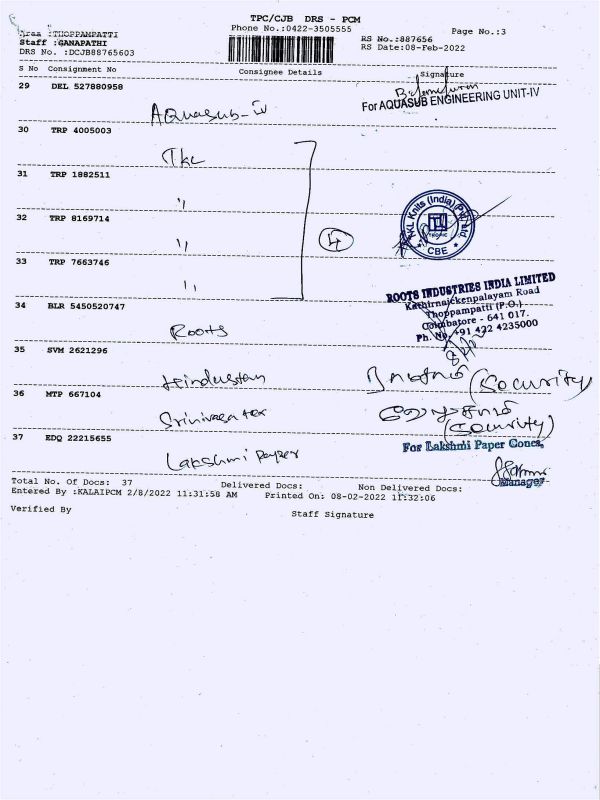 TPC/CJB DRS - PCM
Area :THOPPAMPATTI
Phone No.:0422-3505555
Page No.:3
Staff :GANAPATHI
RS No.:887656
DRS No. :DCJB88765603
RS Date:08-Feb-2022
S No Consignment No Consignee Details Signature
29 DEL 527880958
Aquasub-IV
For AQUASUB ENGINEERING UNIT-IV
30 TRP 4005003
TKL
31 TRP 1882511
"
32 TRP 8169714
"
4
TKL Knits (India) Pvt Ltd
CBE
33 TRP 7663746
"
34 BLR 5450520747
Roots
ROOTS INDUSTRIES INDIA LIMITED
Kathirnaickenpalayam Road
Thoppampatti (P.O.)
Coimbatore - 641 017.
Ph. No +91 422 4235000
35 SVM 2621296
Hindustan
(Security)
36 MTP 667104
Srinivasa tex
(Security)
37 EDQ 22215655
Lakshmi Paper
For Lakshmi Paper Cones,
Manager
Total No. Of Docs: 37 Delivered Docs: Non Delivered Docs:
Entered By :KALAIPCM 2/8/2022 11:31:58 AM Printed On: 08-02-2022 11:32:06
Verified By Staff Signature